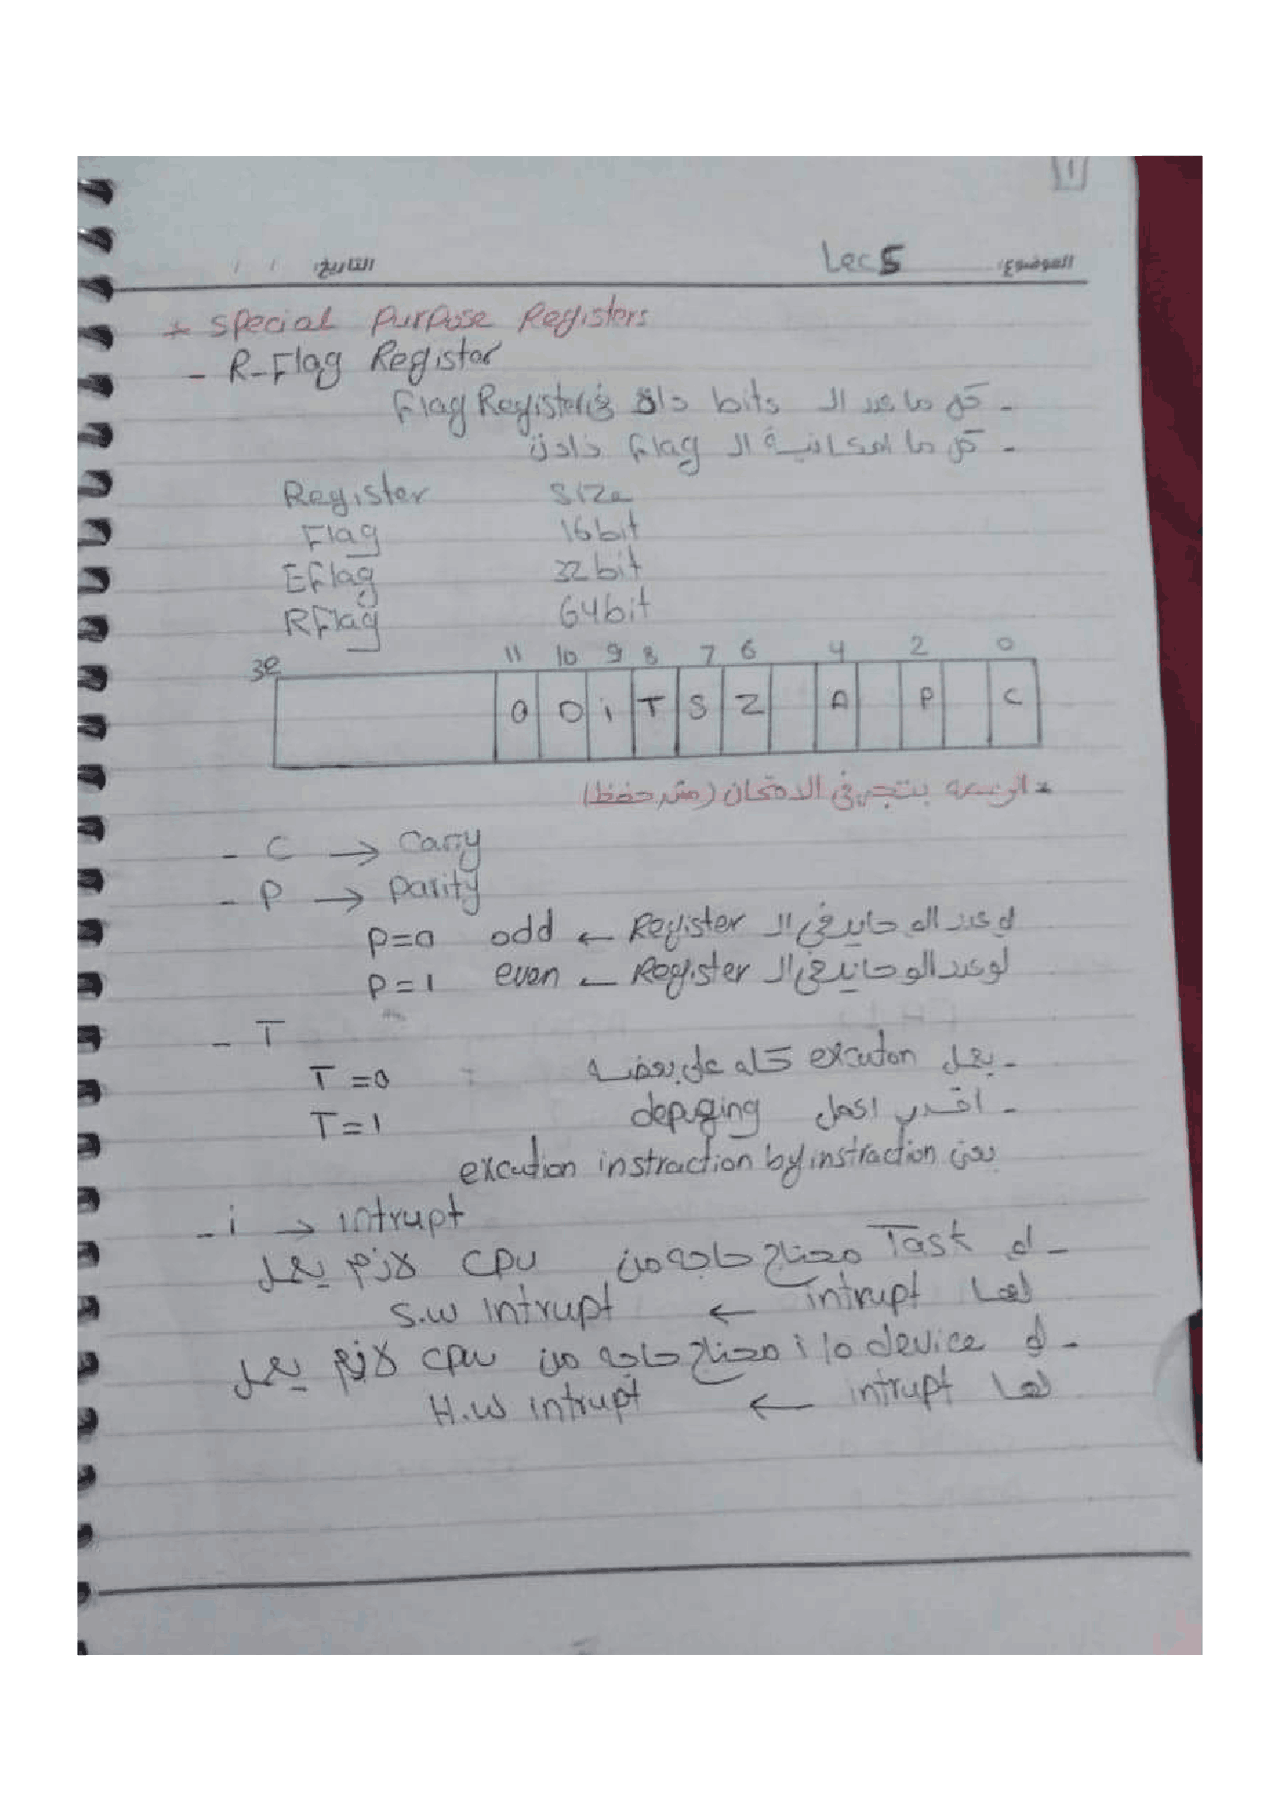 1
الموضوع: Lec 5 التاريخ: / /
* special purpose Registers
- R-Flag Register
- كل ما عدد الـ bits داة في Flag Register
- كل ما امكانية الـ Flag دادت
Register size
Flag 16 bit
EFlag 32 bit
RFlag 64 bit
32 11 10 9 8 7 6 4 2 0
O D i T S Z A P C
* الرسمه بتيجي في الامتحان (مش حفظ)
- C → Carry
- P → Parity
لو عدد الوحايد في الـ Register ← odd P=0
لو عدد الوحايد في الـ Register ← even P=1
- T
T=0 - يعمل excuton كله علي بعضه
T=1 - اقدر اعمل depuging
excution instraction by instraction يعني
- i → intrupt
- لو Task محتاج حاجه من CPU لازم يعمل
لها intrupt ← S.W intrupt
- لو i/o device محتاج حاجه من CPU لازم يعمل
لها intrupt ← H.W intrupt